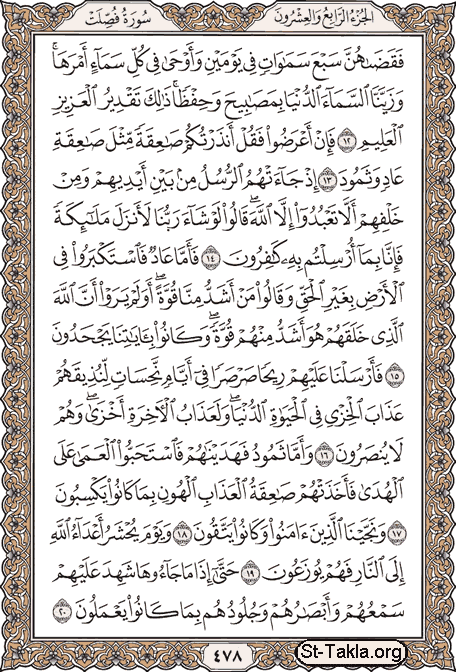 الجزء الرابع والعشرون سورة فصلت
فَقَضَىٰهُنَّ سَبۡعَ سَمَٰوَاتٖ فِي يَوۡمَيۡنِ وَأَوۡحَىٰ فِي كُلِّ سَمَآءٍ أَمۡرَهَاۚ
وَزَيَّنَّا ٱلسَّمَآءَ ٱلدُّنۡيَا بِمَصَٰبِيحَ وَحِفۡظٗاۚ ذَٰلِكَ تَقۡدِيرُ ٱلۡعَزِيزِ
ٱلۡعَلِيمِ ١٢ فَإِنۡ أَعۡرَضُواْ فَقُلۡ أَنذَرۡتُكُمۡ صَٰعِقَةٗ مِّثۡلَ صَٰعِقَةِ
عَادٖ وَثَمُودَ ١٣ إِذۡ جَآءَتۡهُمُ ٱلرُّسُلُ مِنۢ بَيۡنِ أَيۡدِيهِمۡ وَمِنۡ
خَلۡفِهِمۡ أَلَّا تَعۡبُدُوٓاْ إِلَّا ٱللَّهَۖ قَالُواْ لَوۡ شَآءَ رَبُّنَا لَأَنزَلَ مَلَٰٓئِكَةٗ
فَإِنَّا بِمَآ أُرۡسِلۡتُم بِهِۦ كَٰفِرُونَ ١٤ فَأَمَّا عَادٞ فَٱسۡتَكۡبَرُواْ فِي
ٱلۡأَرۡضِ بِغَيۡرِ ٱلۡحَقِّ وَقَالُواْ مَنۡ أَشَدُّ مِنَّا قُوَّةًۖ أَوَلَمۡ يَرَوۡاْ أَنَّ ٱللَّهَ
ٱلَّذِي خَلَقَهُمۡ هُوَ أَشَدُّ مِنۡهُمۡ قُوَّةٗۖ وَكَانُواْ بِـَٔايَٰتِنَا يَجۡحَدُونَ
١٥ فَأَرۡسَلۡنَا عَلَيۡهِمۡ رِيحٗا صَرۡصَرٗا فِيٓ أَيَّامٖ نَّحِسَاتٖ لِّنُذِيقَهُمۡ
عَذَابَ ٱلۡخِزۡيِ فِي ٱلۡحَيَوٰةِ ٱلدُّنۡيَاۖ وَلَعَذَابُ ٱلۡأٓخِرَةِ أَخۡزَىٰۖ وَهُمۡ
لَا يُنصَرُونَ ١٦ وَأَمَّا ثَمُودُ فَهَدَيۡنَٰهُمۡ فَٱسۡتَحَبُّواْ ٱلۡعَمَىٰ عَلَى
ٱلۡهُدَىٰ فَأَخَذَتۡهُمۡ صَٰعِقَةُ ٱلۡعَذَابِ ٱلۡهُونِ بِمَا كَانُواْ يَكۡسِبُونَ
١٧ وَنَجَّيۡنَا ٱلَّذِينَ ءَامَنُواْ وَكَانُواْ يَتَّقُونَ ١٨ وَيَوۡمَ يُحۡشَرُ أَعۡدَآءُ ٱللَّهِ
إِلَى ٱلنَّارِ فَهُمۡ يُوزَعُونَ ١٩ حَتَّىٰٓ إِذَا مَا جَآءُوهَا شَهِدَ عَلَيۡهِمۡ
سَمۡعُهُمۡ وَأَبۡصَٰرُهُمۡ وَجُلُودُهُم بِمَا كَانُواْ يَعۡمَلُونَ ٢٠
٤٧٨
St-Takla.org